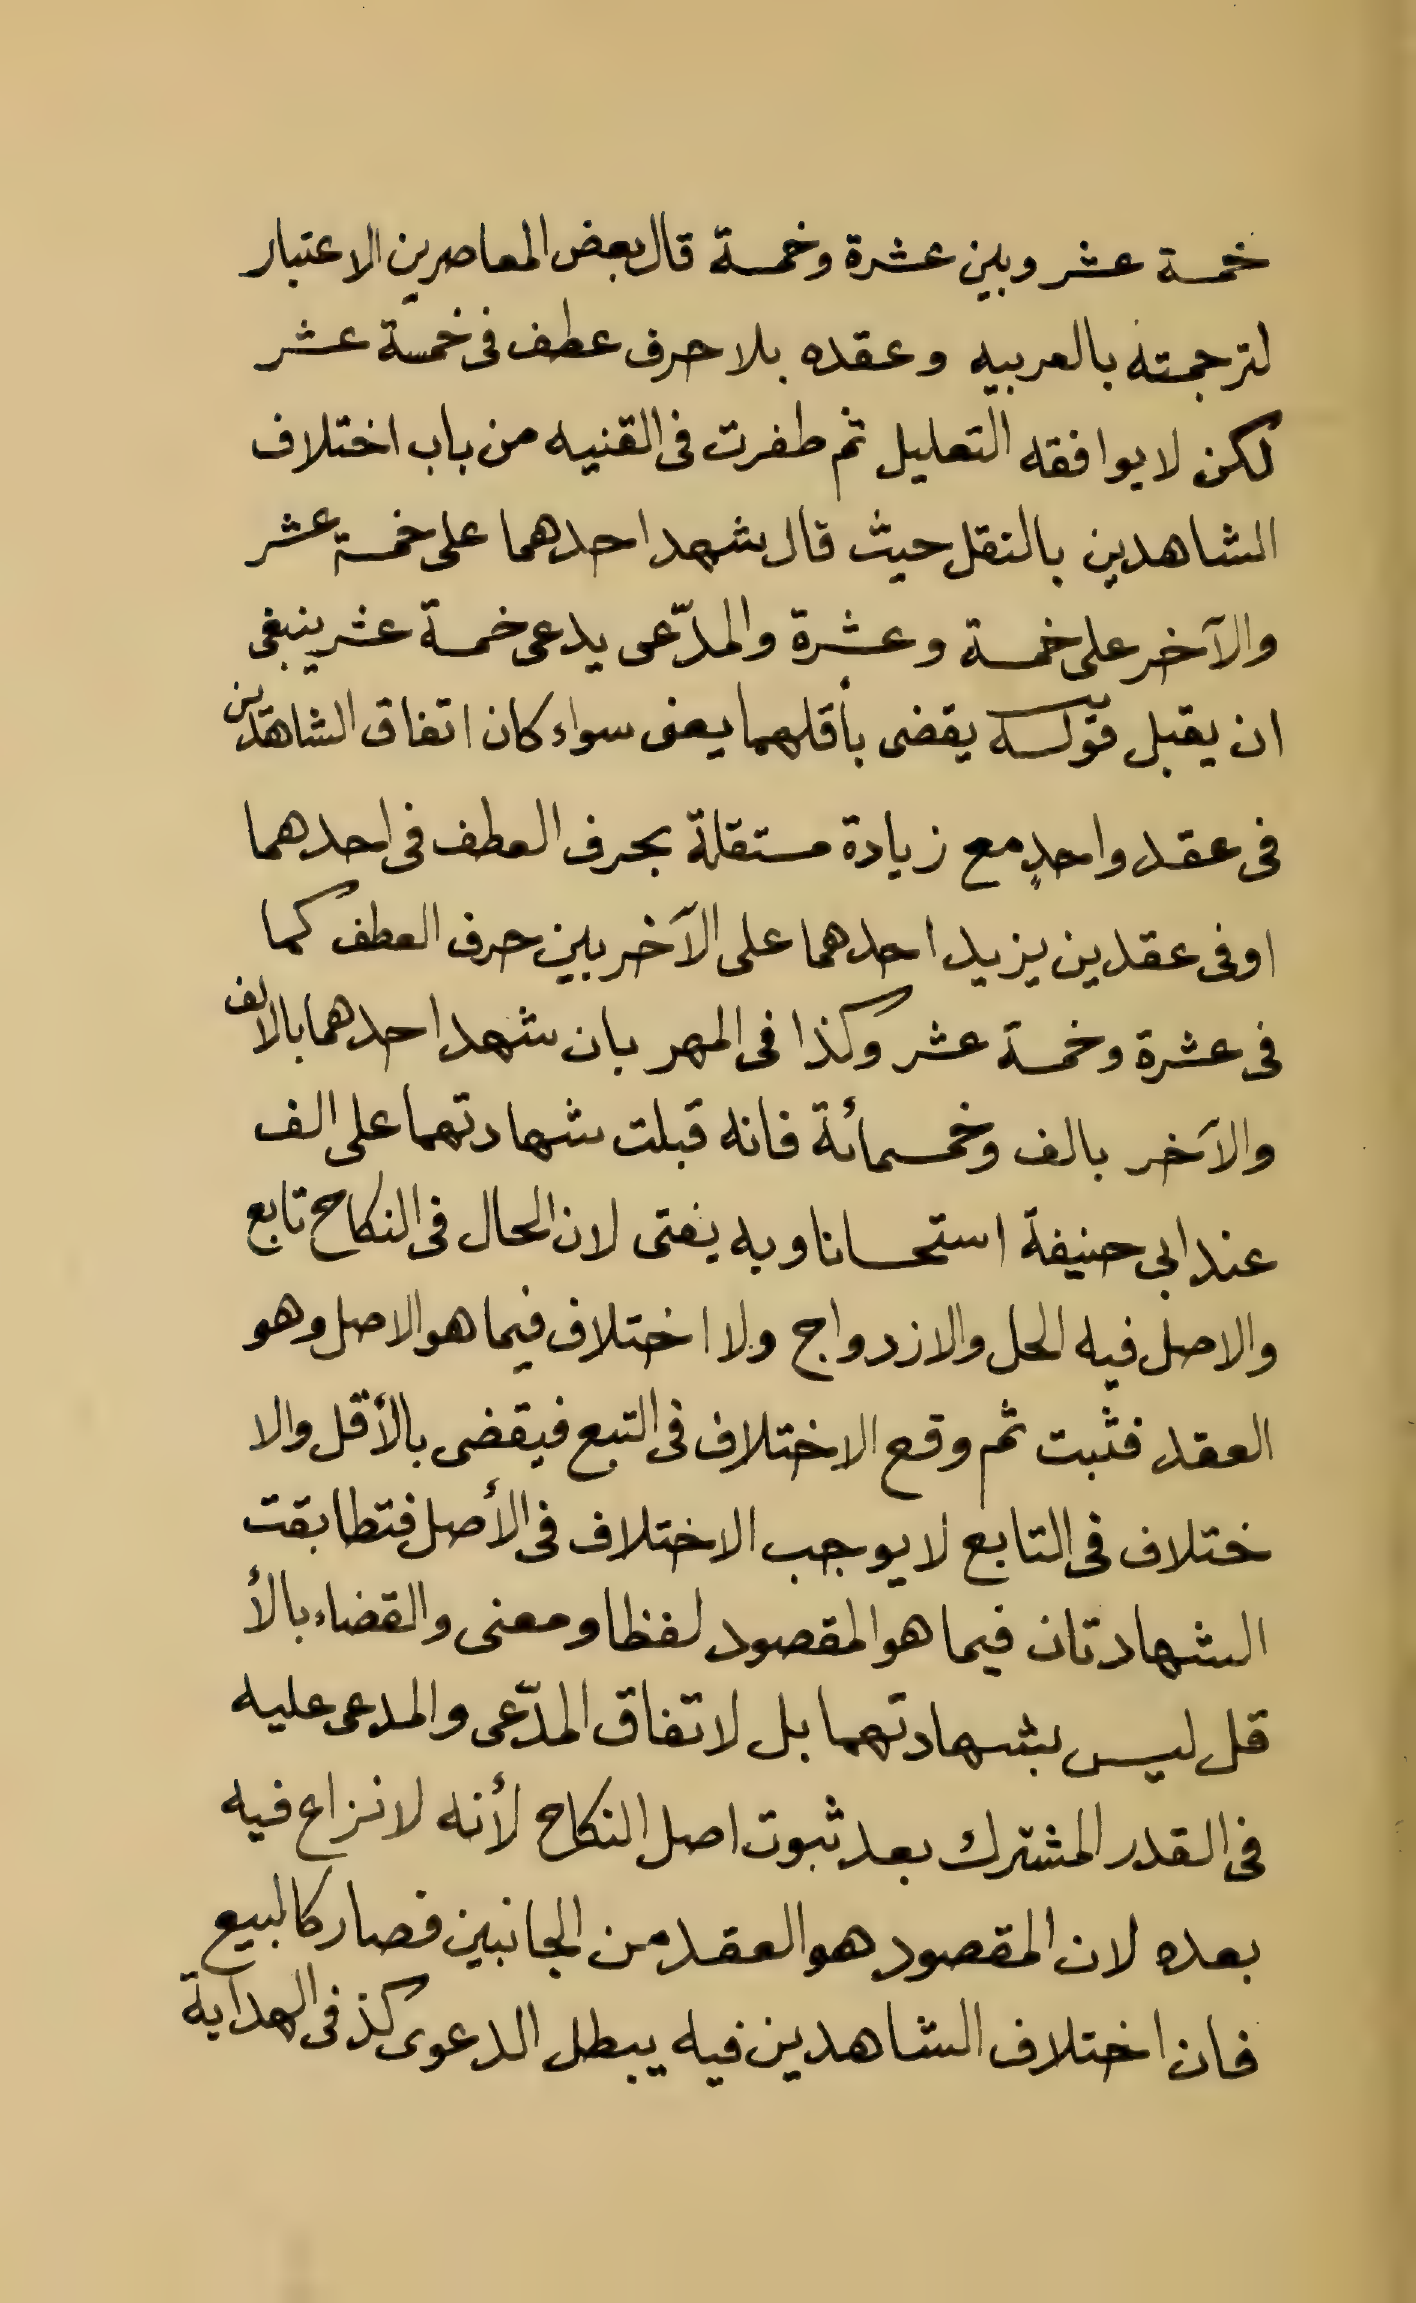 خمسة عشر وبين عشرة وخمسة قال بعض المعاصرين الاعتبار
لترجمته بالعربيه وعقده بلا حرف عطف فى خمسة عشر
لكن لا يوافقه التعليل ثم طفرت فى القنيه من باب اختلاف
الشاهدين بالنقل حيث قال شهد احدهما على خمسة عشر
والآخر على خمسة وعشرة والمدّعى يدعى خمسة عشر ينبغى
ان يقبل قوله يقضى بأقلهما يعنى سواء كان اتفاق الشاهدين
فى عقد واحدٍ مع زيادة مستقلة بحرف العطف فى احدهما
او فى عقدين يزيد احدهما على الآخر بين حرف العطف كما
فى عشرة وخمسة عشر وكذا فى المهر بان شهد احدهما بالالف
والآخر بالف وخمسمائة فانه قبلت شهادتهما على الف
عند ابى حنيفة استحسانا وبه يفتى لان الحال فى النكاح تابع
والاصل فيه الحل والازدواج ولا اختلاف فيما هو الاصل وهو
العقد فثبت ثم وقع الاختلاف فى التبع فيقضى بالأقل والا
ختلاف فى التابع لا يوجب الاختلاف فى الأصل فتطابقت
الشهادتان فيما هو المقصود لفظا ومعنى والقضاء بالأ
قل ليس بشهادتهما بل لاتفاق المدّعى والمدعى عليه
فى القدر المشترك بعد ثبوت اصل النكاح لأنه لا نزاع فيه
بعده لان المقصود هو العقد من الجانبين فصار كالبيع
فان اختلاف الشاهدين فيه يبطل الدعوى كذ فى الهداية